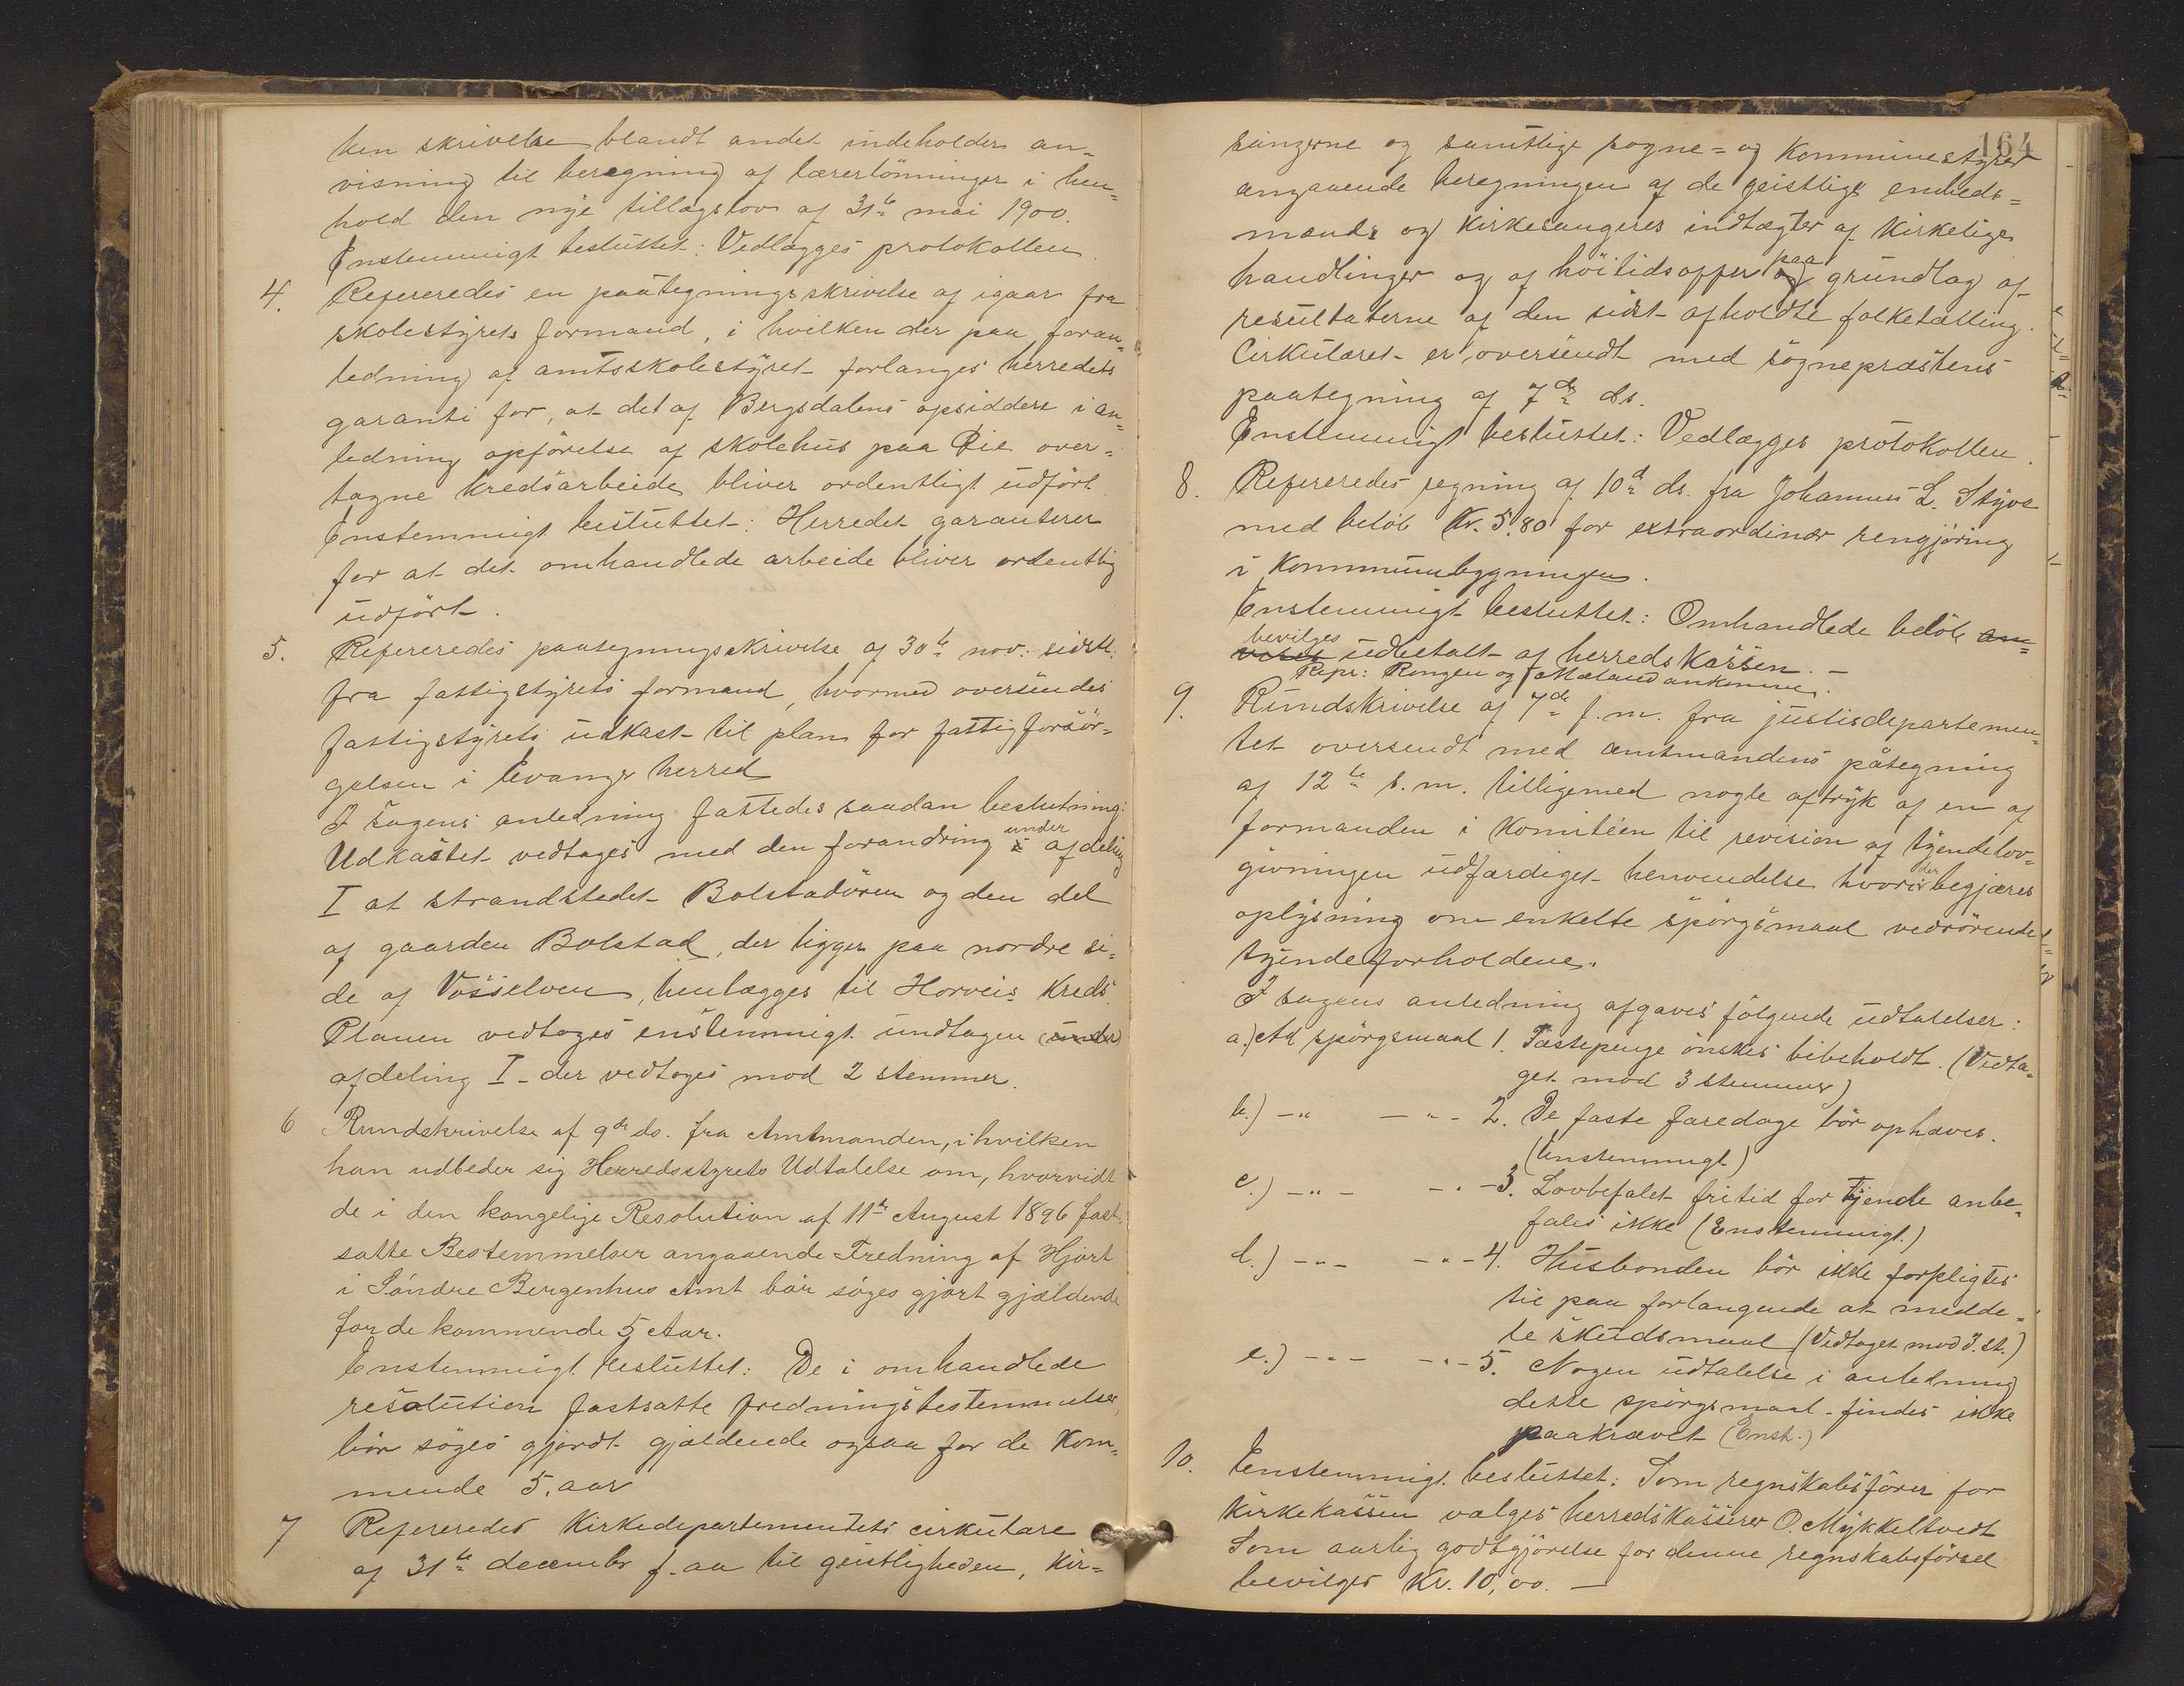 ken skrivelse blandt andet indeholder an-
visning til beregning af lærerlönninger i hen-
hold den nye tillægslov af 31te mai 1900.
Enstemmigt besluttet: Vedlægges protokollen.
4. Refereredes en paategningsskrivelse af igaar fra
skolestyrets formand, i hvilken der paa foran-
ledning af amtsskolestyret forlanges herredets
garanti for, at det af Bergsdalens opsiddere i an-
ledning opförelse af skolehus paa Lie over-
tagne kredsarbeide bliver ordentligt udfört.
Enstemmigt besluttet: Herredet garanterer
for at det omhandlede arbeide bliver ordentlig
udfört.
5. Refereredes paategningsskrivelse af 30te nov. sidstl.
fra fattigstyrets formand, hvormed oversendes
fattigstyrets udkast til plan for fattigforsör-
gelsen i Evanger herred
I sagens anledning fattedes saadan beslutning:
Udkastet vedtages med den forandring under afdeling
I at strandstedet Bolstadören og den del
af gaarden Bolstad, der ligger paa nordre si-
de af Vosselven, henlægges til Horveis kreds.
Planen vedtoges enstemmigt undtagen (under)
afdeling I der vedtoges mod 2 stemmer.
6 Rundskrivelse af 9de ds. fra Amtmanden, i hvilken
han udbeder sig Herredsstyrets Udtalelse om, hvorvidt
de i den kongelige Resolution af 11te August 1896 fast-
satte Bestemmelser angaaende Fredning af Hjort
i Söndre Bergenhus Amt bör söges gjort gjældende
for de kommende 5 Aar.
Enstemmigt besluttet: De i omhandlede
resolution fastsatte fredningsbestemmelser,
bör söges gjordt gjældende ogsaa for de kom-
mende 5. aar
7 Refereredes Kirkedepartementets cirkulære
af 31te december f. aa til geistligheden, kir-
164
sangerne og samtlige sogne- og kommunestyrer
angaaende beregningen af de geistlige embeds-
mænds og kirkesangeres indtægter af kirkelige
handlinger og af höitidsoffer paa grundlag af
resultaterne af den sidst afholdte folketælling.
Cirkulæret er oversendt med sogneprestens
paategning af 7de ds.
Enstemmigt besluttet: Vedlægges protokollen.
8. Refereredes regning af 10de ds. fra Johannes L. Styve
med belöb Kr. 5,80 for extraordinær rengjöring
i kommunebygningen.
Enstemmigt besluttet: Omhandlede belöb an-
bevilges
vises udbetalt af herredskassen. —
Repr: Rongen og Mæland ankommer.
9. Rundskrivelse af 7de f.m. fra justisdepartemen-
tet oversendt med amtmandens påtegning
af 12te s.m. tilligemed nogle aftryk af en af
formanden i komitéen til revision af tyendelov-
givningen udfærdiget henvendelse hvori der begjæres
oplysning om enkelte spörgsmaal vedrörende
tyendeforholdene.
I sagens anledning afgaves fölgende udtalelser:
a.) Ad spörgsmaal 1. Fæstepenge önskes bibeholdt. (Vedta-
get mod 3 stemmer)
b.) —"— —"— 2. De faste faredage bör ophæves.
(Enstemmigt)
c.) —"— —"— 3. Lovbefalet fritid for tjende anbe-
fales ikke (Enstemmigt.)
d.) —"— —"— 4. Husbonden bör ikke forpligtes
til paa forlangende at medde-
le skudsmaal (Vedtaget mod 3. st.)
e.) —"— —"— 5. Nogen udtalelse i anledning
dette spörgsmaal findes ikke
paakrævet (Enst.)
10. Enstemmigt besluttet: Som regnskabsförer for
kirkekassen vælges herredskasserer O. Mykkeltvedt
Som aarlig godtgjörelse for denne regnskabsförsel
bevilges Kr. 10,00. —